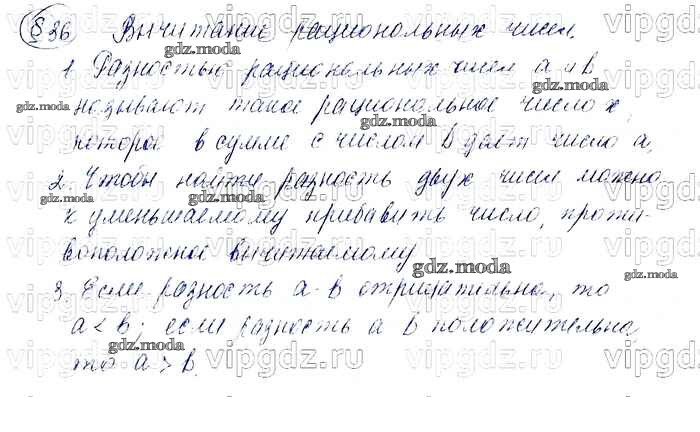 § 36 Вычитание рациональных чисел.
1. Разностью рациональных чисел a и b
называют такое рациональное число x,
которое в сумме с числом b дает число a.
2. Чтобы найти разность двух чисел можно
к уменьшаемому прибавить число, проти-
воположное вычитаемому
3. Если разность a - b отрицательна, то
a < b; если разность a b положительна,
то a > b.
gdz.moda
vipgdz.ru